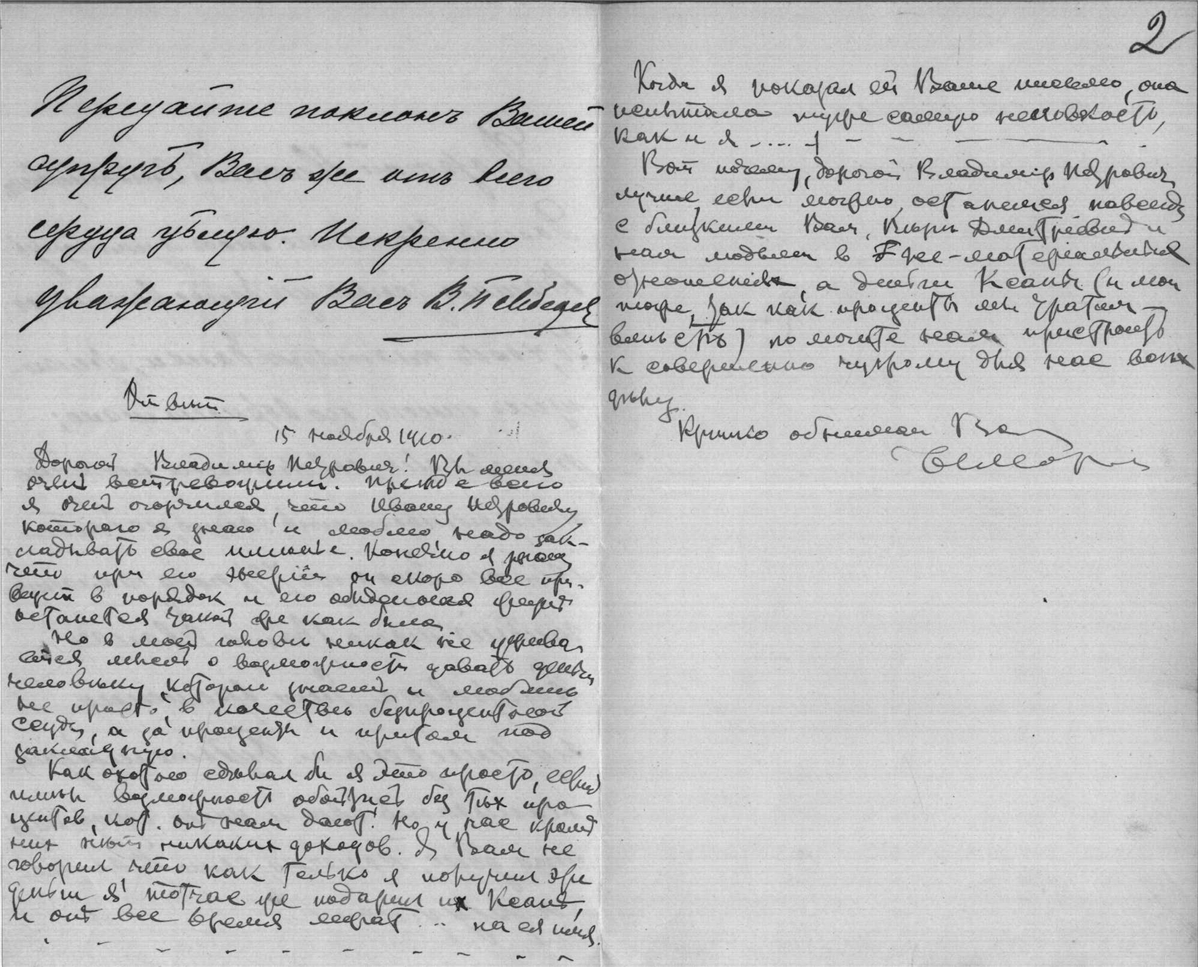 Передайте поклонъ Вашей
супругѣ, Васъ же отъ всего
сердца цѣлую. Искренно
уважающій Васъ В. Лебедев
Отвѣт
15 ноября 1910.
Дорогой Владимір Петрович! Вы меня
очень встревожили. Прежде всего
я очень огорчился, что Ивану Петровичу
котораго я знаю и люблю надо зак-
ладывать свое имѣніе. Конечно я
что при его энергіи он скоро все при-
ведет в порядок и его
останется такой же как была
Но в моей головѣ никак не укрѣпи
мысль о возможности давать деньги
человѣку, котораго знаешь и любишь
не просто в качествѣ безпроцентной
ссуды, а за проценты и притом под
закладную.
Как охотно сдѣлал бы я это просто, если б
имѣл возможность обойтись без тѣх про-
центов, кот. они нам дают. Но у нас кромѣ
них нѣт никаких доходов. Я Вам не
говорил что как только я получил эти
деньги я тотчас же подарил их Ксаны,
и они все время лежат .. на ея имя.
2
Когда я показал ей Ваше письмо, она
испытала ту же самую неловкость,
как и я
Вот почему, дорогой Владимір Петрович,
лучше если можно, останемся навсегда
с близкими Вам, Киры Дмитріевны и
нам людьми в не-матеріальных
отношеніях, а деньги Ксаны (и мои
тоже, так как проценты мы тратим
вмѣстѣ) помогите нам пристроить
к совершенно чужому для нас
дѣлу.
Крѣпко обнимаю Вас